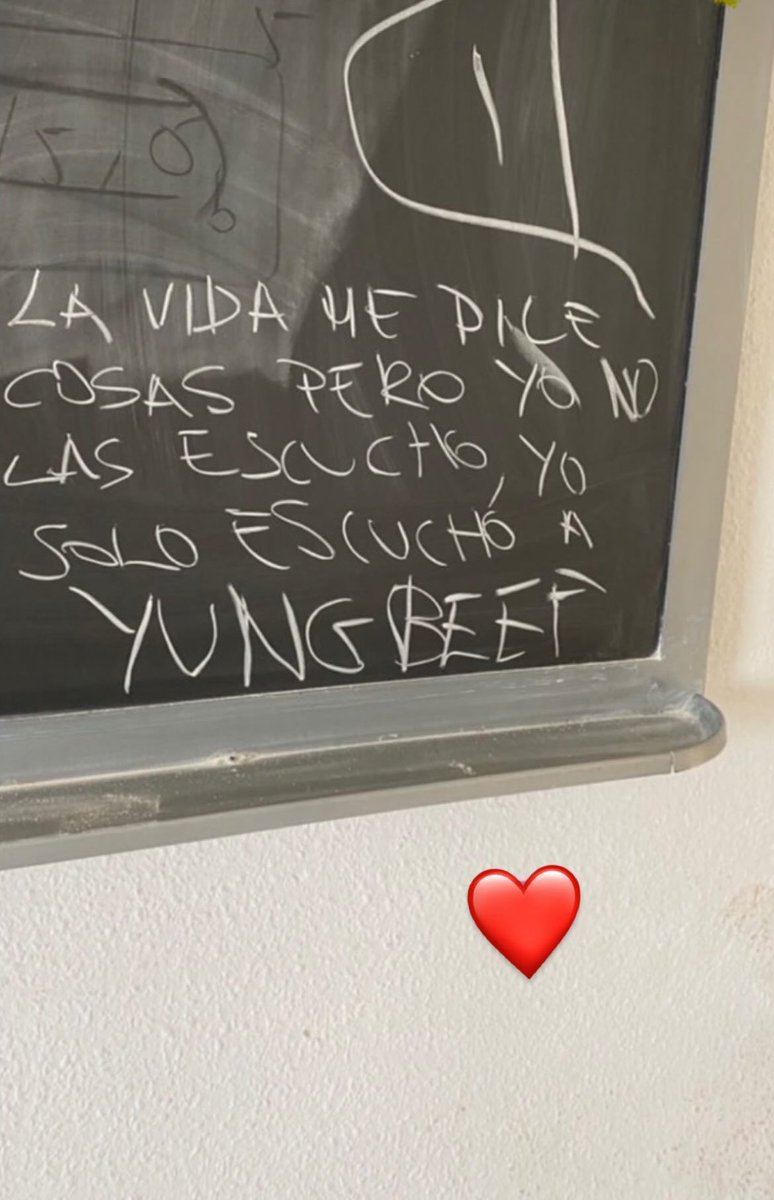 LA VIDA ME DICE
COSAS PERO YO NO
LAS ESCUCHO, YO
SOLO ESCUCHÓ A
YUNG BEEF